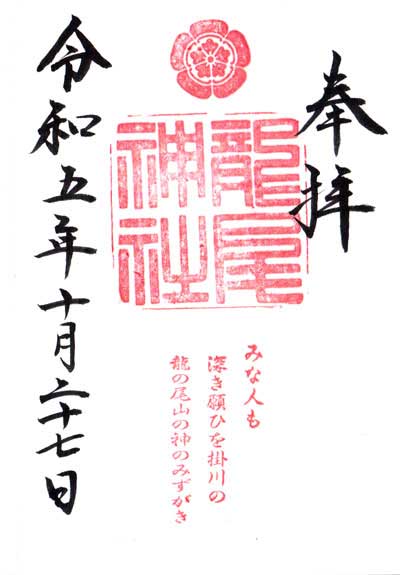 奉拝
龍尾
神社
みな人も
深き願ひを掛川の
龍の尾山の神のみずがき
令和五年十月二十七日